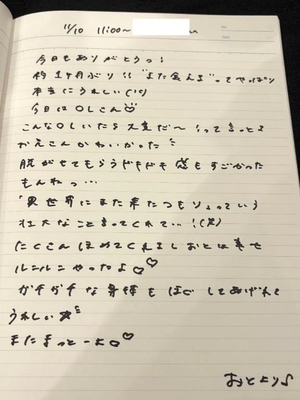 11/10 11:00〜
今日もありがとうっ!
約1ヶ月ぶり!!"また会えます"ってやっぱり
本当にうれしい(!!)
今日は〇しこん
こんな〇しいたら大変だ〜!って言っとき
かえこんかわいかった
脱がせてもらうドキドキ感もすごかった
もんねっ...
「異世界にまた来たつもり」っていう
壮大なこと言ってくれて...!(笑)
たくさんほめてくれましおとは幸せ
ルンルンやったよ♡♡
ガチガチな身体もほぐしてあげれて
うれしい☆
まだまっとーよ♡
おとより♪